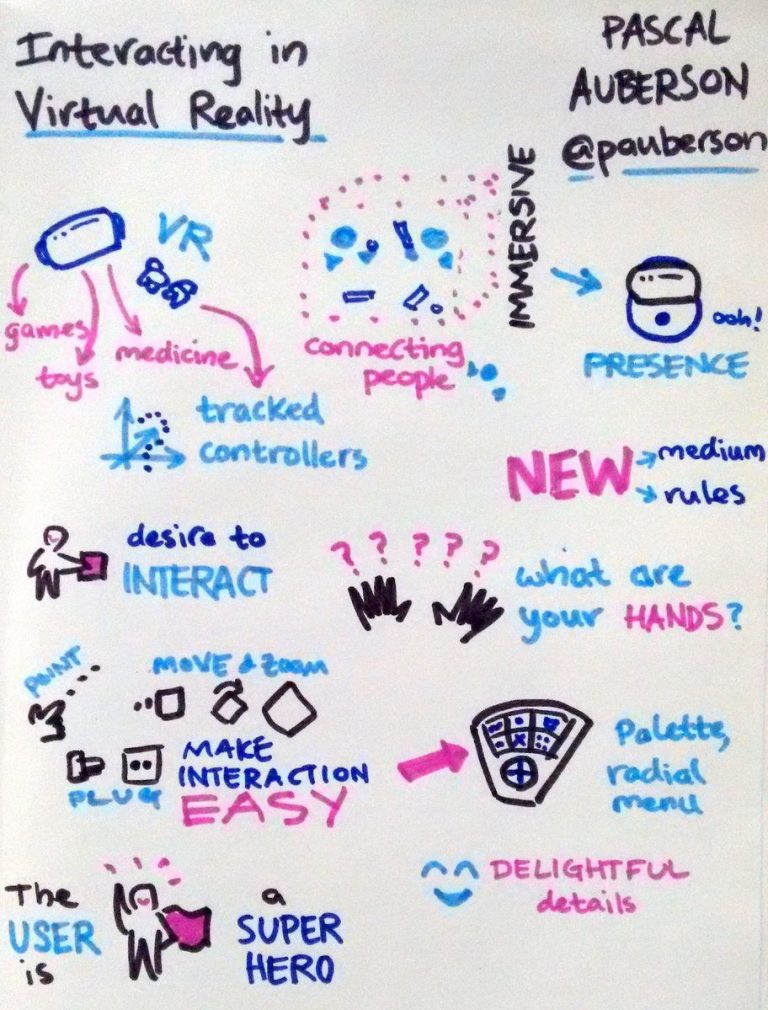 Interacting in
Virtual Reality
PASCAL
AUBERSON
@pauberson
VR
games
toys
medicine
tracked
controllers
connecting
people
IMMERSIVE
ooh!
PRESENCE
NEW
medium
rules
desire to
INTERACT
? ? ? ? ?
what are
your HANDS?
POINT
MOVE & ZOOM
PLUG
MAKE
INTERACTION
EASY
Palette,
radial
menu
DELIGHTFUL
details
The
USER
is
a
SUPER
HERO